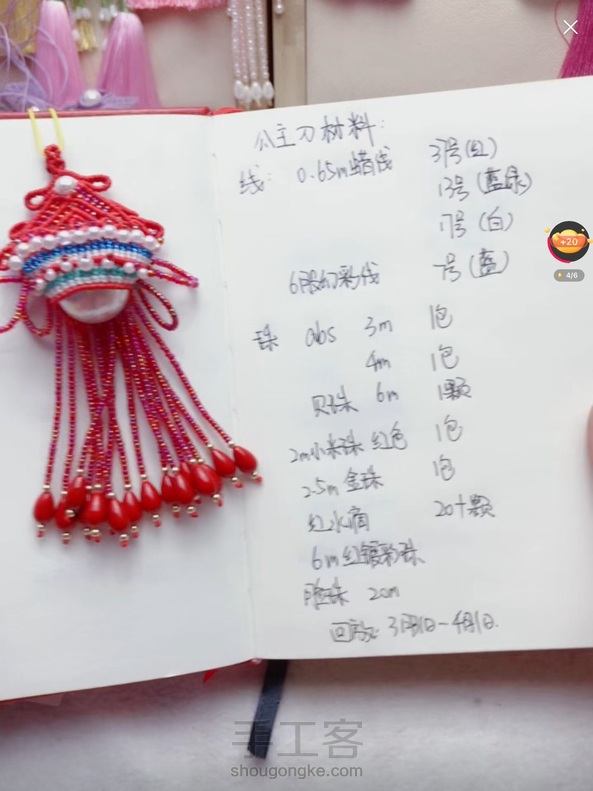 公主刀材料:
线: 0.65m蜡线 37号(红)
13号(蓝绿)
17号(白)
6股幻彩线 7号(蓝)
珠 abs 3m 1包
4m 1包
贝珠 6m 1颗
2m小米珠 红色 1包
2.5m金珠 1包
红水滴 20十颗
6m红镀彩珠
脸珠 2cm
回放: 3月1日-4月1日.
+20
4/6
手工客
shougongke.com